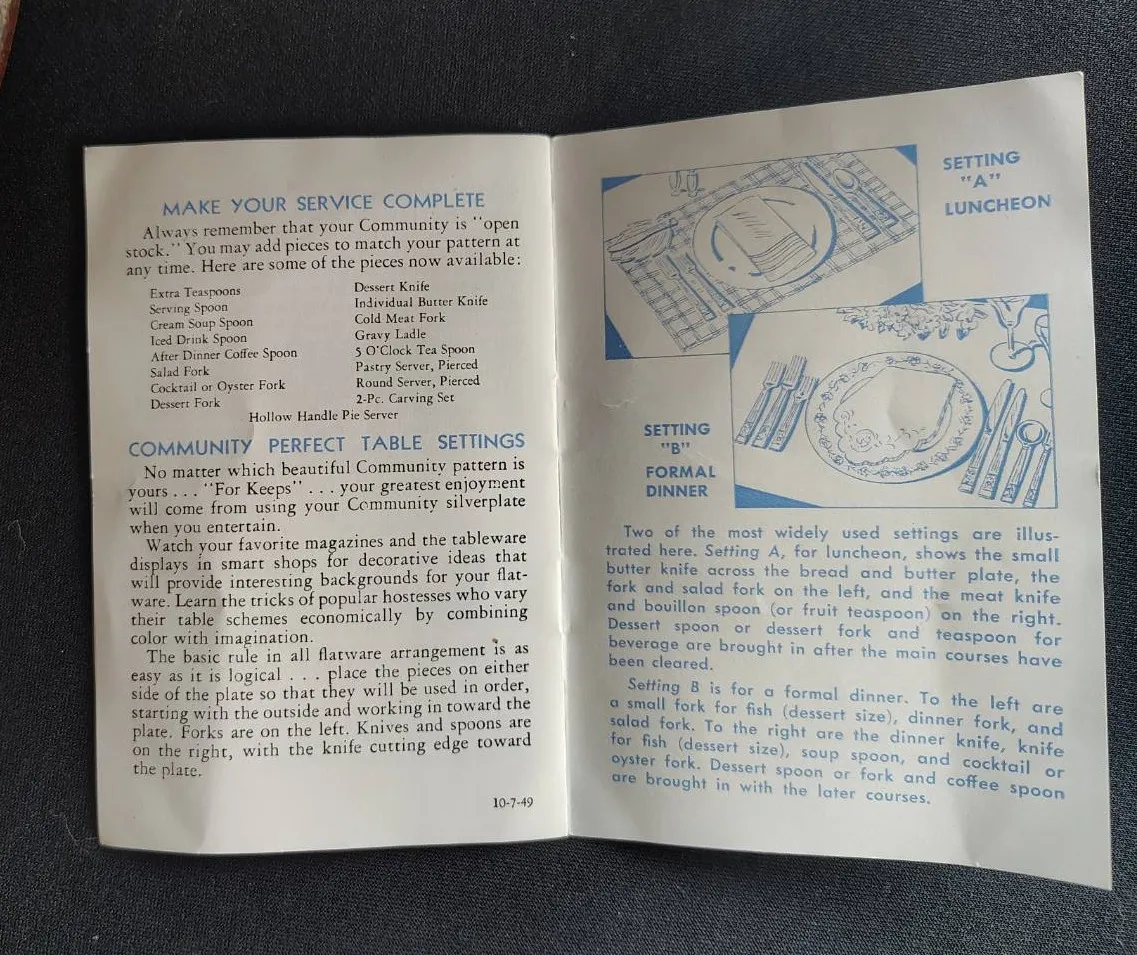 MAKE YOUR SERVICE COMPLETE
Always remember that your Community is "open
stock." You may add pieces to match your pattern at
any time. Here are some of the pieces now available:
Extra Teaspoons
Serving Spoon
Cream Soup Spoon
Iced Drink Spoon
After Dinner Coffee Spoon
Salad Fork
Cocktail or Oyster Fork
Dessert Fork
Dessert Knife
Individual Butter Knife
Cold Meat Fork
Gravy Ladle
5 O'Clock Tea Spoon
Pastry Server, Pierced
Round Server, Pierced
2-Pc. Carving Set
Hollow Handle Pie Server
COMMUNITY PERFECT TABLE SETTINGS
No matter which beautiful Community pattern is
yours . . . "For Keeps" . . . your greatest enjoyment
will come from using your Community silverplate
when you entertain.
Watch your favorite magazines and the tableware
displays in smart shops for decorative ideas that
will provide interesting backgrounds for your flat-
ware. Learn the tricks of popular hostesses who vary
their table schemes economically by combining
color with imagination.
The basic rule in all flatware arrangement is as
easy as it is logical . . . place the pieces on either
side of the plate so that they will be used in order,
starting with the outside and working in toward the
plate. Forks are on the left. Knives and spoons are
on the right, with the knife cutting edge toward
the plate.
10-7-49
SETTING
"A"
LUNCHEON
SETTING
"B"
FORMAL
DINNER
Two of the most widely used settings are illus-
trated here. Setting A, for luncheon, shows the small
butter knife across the bread and butter plate, the
fork and salad fork on the left, and the meat knife
and bouillon spoon (or fruit teaspoon) on the right.
Dessert spoon or dessert fork and teaspoon for
beverage are brought in after the main courses have
been cleared.
Setting B is for a formal dinner. To the left are
a small fork for fish (dessert size), dinner fork, and
salad fork. To the right are the dinner knife, knife
for fish (dessert size), soup spoon, and cocktail or
oyster fork. Dessert spoon or fork and coffee spoon
are brought in with the later courses.